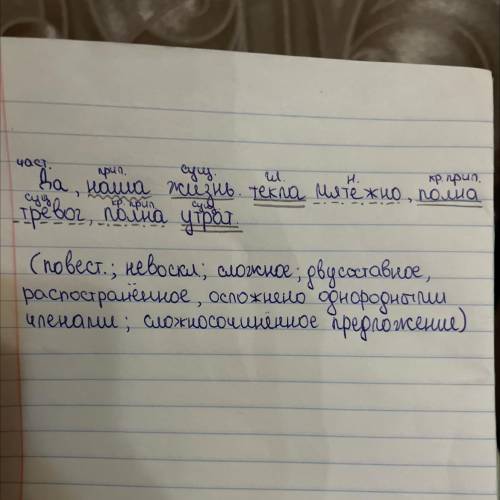 част. прил. сущ. гл. н. кр. прил.
Да, наша жизнь текла мятежно, полна
сущ. кр. прил. сущ.
тревог, полна утрат.
(повест.; невоскл; сложное; двусоставное,
распостранённое, осложнено однородными
членами; сложносочинённое предложение)